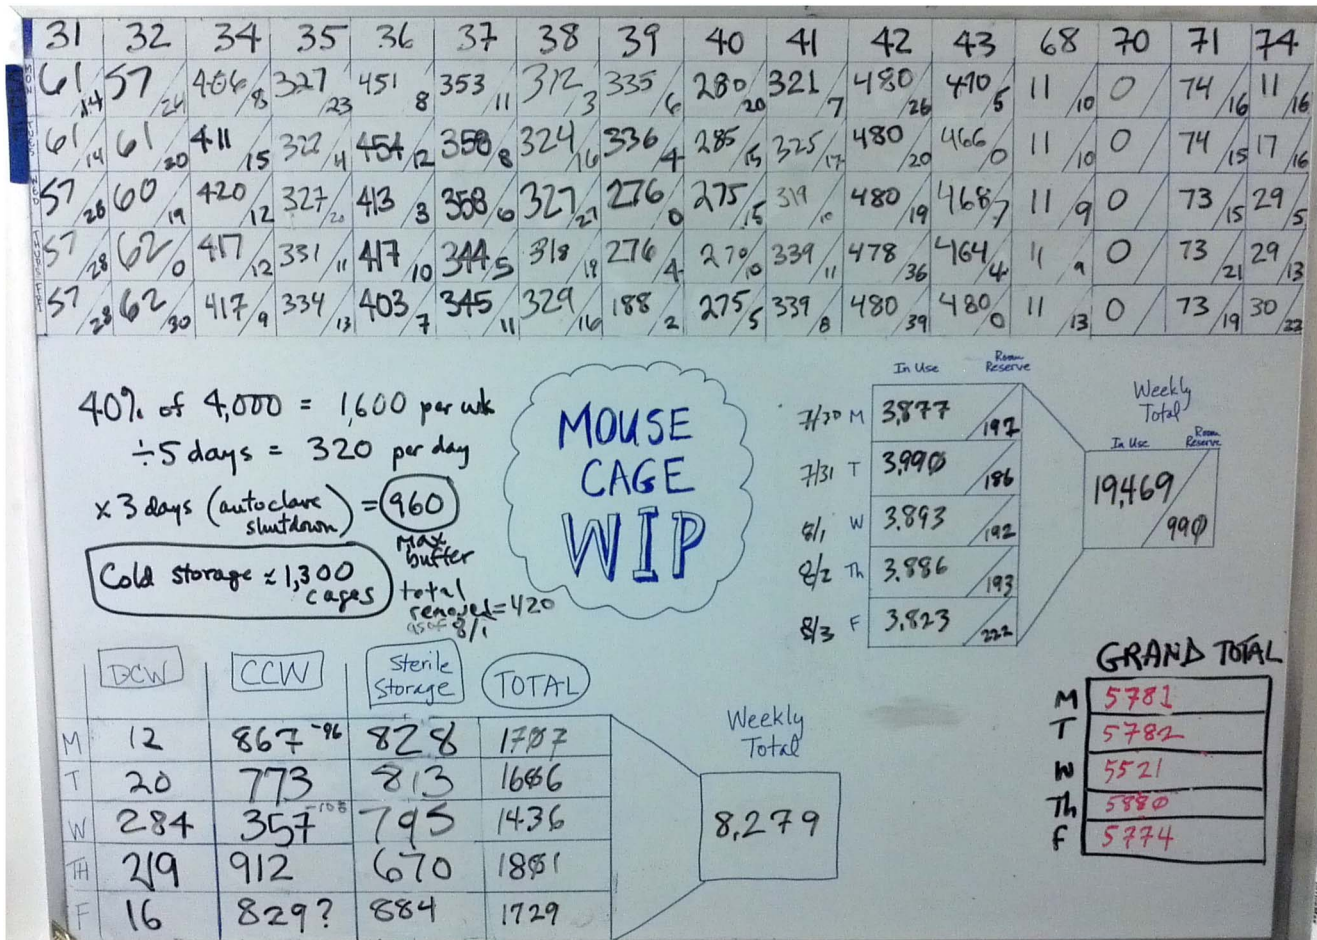 31 32 34 35 36 37 38 39 40 41 42 43 68 70 71 74
MON 61/14 57/24 406/8 327/23 451/8 353/11 312/3 335/6 280/20 321/7 480/26 470/5 11/10 0/ 74/16 11/16
TUES 61/14 61/20 411/15 322/4 454/12 358/8 324/16 336/4 285/15 325/17 480/20 466/0 11/10 0/ 74/15 17/16
WED 57/28 60/19 420/12 327/20 413/3 358/6 327/27 276/0 275/15 319/10 480/19 468/7 11/9 0/ 73/15 29/5
THURS 57/28 62/0 417/12 331/11 417/10 344/5 318/18 276/4 270/10 339/11 478/36 464/4 11/9 0/ 73/21 29/13
FRI 57/28 62/30 417/9 334/13 403/7 345/11 329/16 188/2 275/5 339/8 480/39 480/0 11/13 0/ 73/19 30/22
40% of 4,000 = 1,600 per wk
÷5 days = 320 per day
x 3 days (autoclave shutdown) = 960
max buffer
Cold storage ≈ 1,300 cages
total removed = 420
as of 8/1
MOUSE
CAGE
WIP
In Use Room Reserve
7/30 M 3,877/197
7/31 T 3,990/186
8/1 W 3,893/192
8/2 Th 3,886/193
8/3 F 3,823/222
Weekly Total
In Use Room Reserve
19,469/990
DCW CCW Sterile Storage TOTAL
M 12 867 -96 828 1707
T 20 773 813 1606
W 284 357 -108 795 1436
TH 219 912 670 1801
F 16 829? 884 1729
Weekly Total
8,279
GRAND TOTAL
M 5781
T 5782
W 5521
Th 5880
F 5774